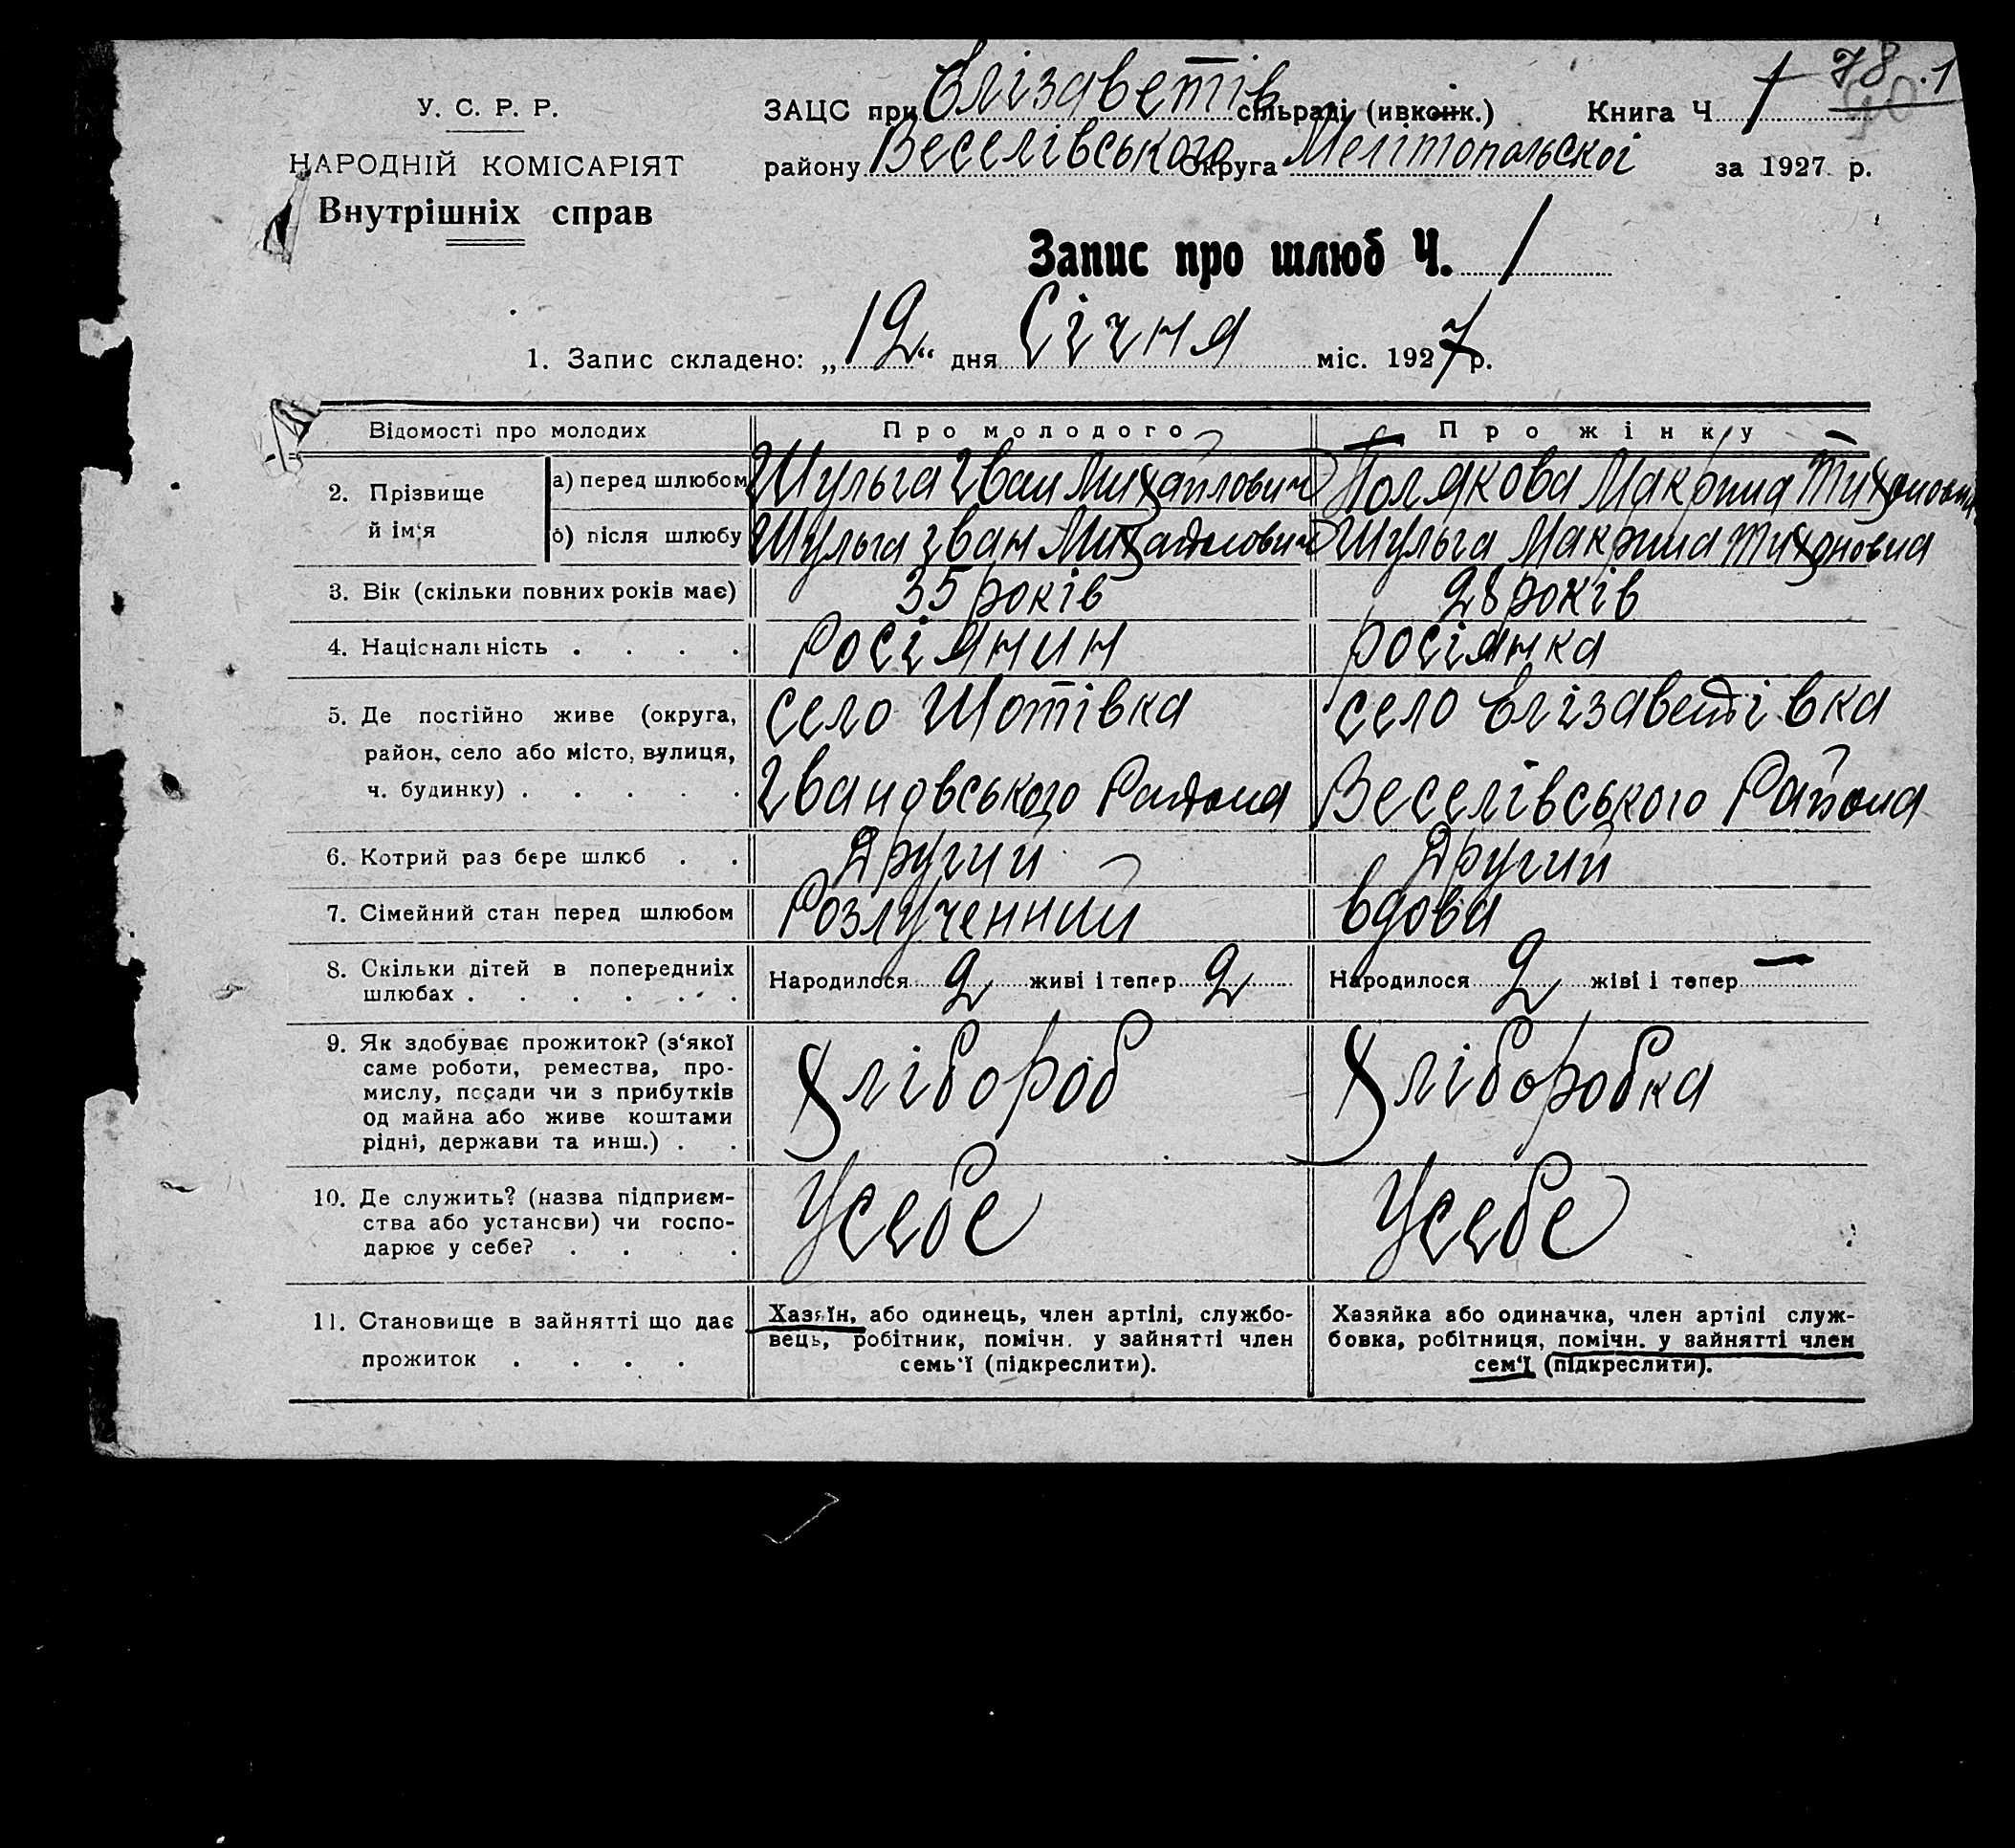 78.1
90
У. С. Р. Р.
НАРОДНІЙ КОМІСАРІЯТ
Внутрішніх справ
ЗАЦС при Єлізаветів сільраді (ивконк.) Книга Ч. 1
району Веселівського Округа Мелітопольскої за 1927 р.
Запис про шлюб Ч. 1
1. Запис складено: „12“ дня Січня міс. 1927 р.
Відомості про молодих Про молодого Про жінку
2. Прізвище й ім‘я
а) перед шлюбом Шульга Іван Михайлович Полякова Макрина Тихоновна
б) після шлюбу Шульга Іван Михайлович Шульга Макрина Тихоновна
3. Вік (скільки повних років має) 35 років 28 років
4. Національність . . . . Росіянин росіянка
5. Де постійно живе (округа, село Шотівка село Єлізаветівка
район, село або місто, вулиця,
ч. будинку) . . . . . Івановського Района Веселівського Района
6. Котрий раз бере шлюб . . Другий Другий
7. Сімейний стан перед шлюбом Розлученний вдова
8. Скільки дітей в попередниіх Народилося 2 живі і тепер 2 Народилося 2 жіві і тепер —
шлюбах . . . . . .
9. Як здобуває прожиток? (з‘якої
саме роботи, ремества, про-
мислу, посади чи з прибутків Хлібороб Хліборобка
од майна або живе коштами
рідні, держави та инш.) . .
10. Де служить? (назва підприєм-
ства або установи) чи госпо- Усебе Усебе
дарює у себе? . . . .
11. Становище в зайнятті що дає
прожиток . . . .
Хазяїн, або одинець, член артілі, службо-
вець, робітник, помічн. у зайнятті член
семь‘ї (підкреслити).
Хазяйка або одиначка, член артілі служ-
бовка, робітниця, помічн. у зайнятті член
сем‘ї (підкреслити).